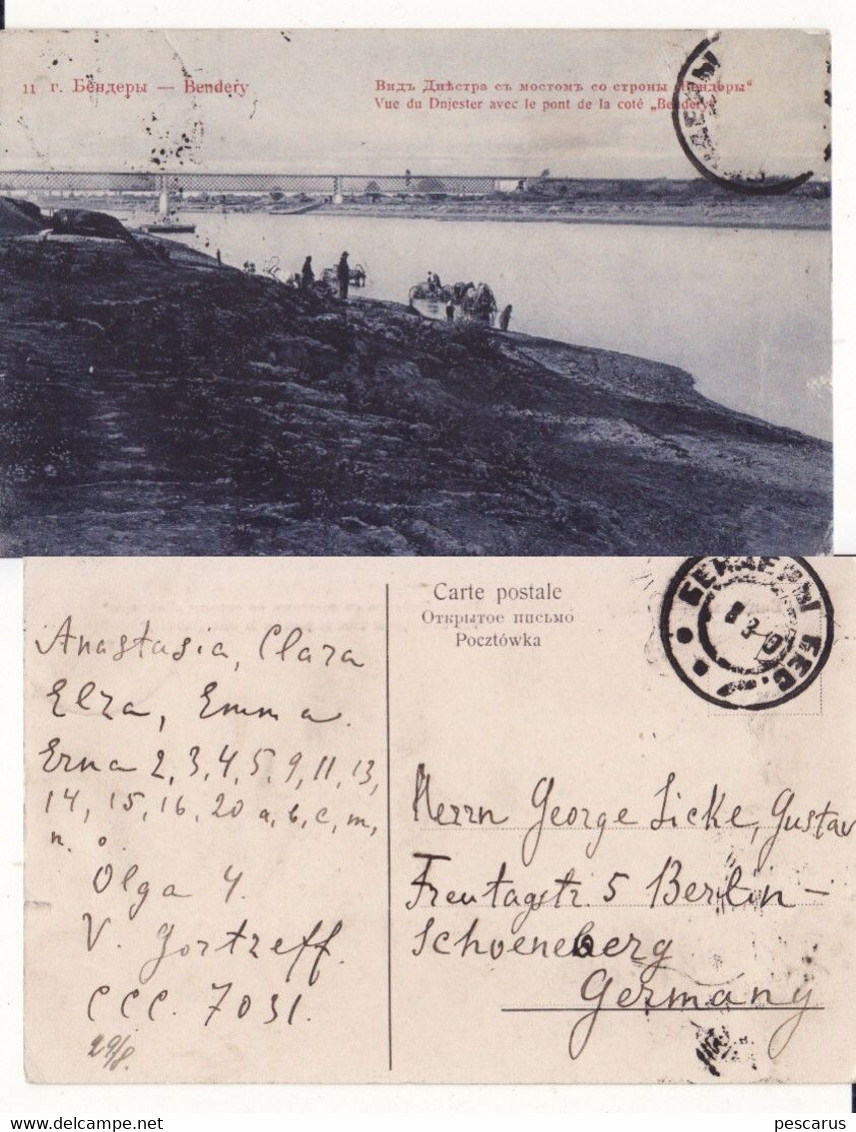 11 г. Бендеры — Bendery
Видъ Днѣстра съ мостомъ со строны „Бендеры“
Vue du Dnjester avec le pont de la coté „Bendery“
Carte postale
Открытое письмо
Pocztówka
БЕНДЕРЫ БЕС.
Anastasia, Clara
Elza, Emma.
Erna 2, 3, 4, 5, 9, 11, 13,
14, 15, 16, 20 a, b, c, m,
n. o.
Olga 4.
V. Gortzeff.
CCC. 7031.
29/8.
Herrn George Licke, Gustav
Freytagstr. 5 Berlin –
Schoeneberg
Germany
pescarus